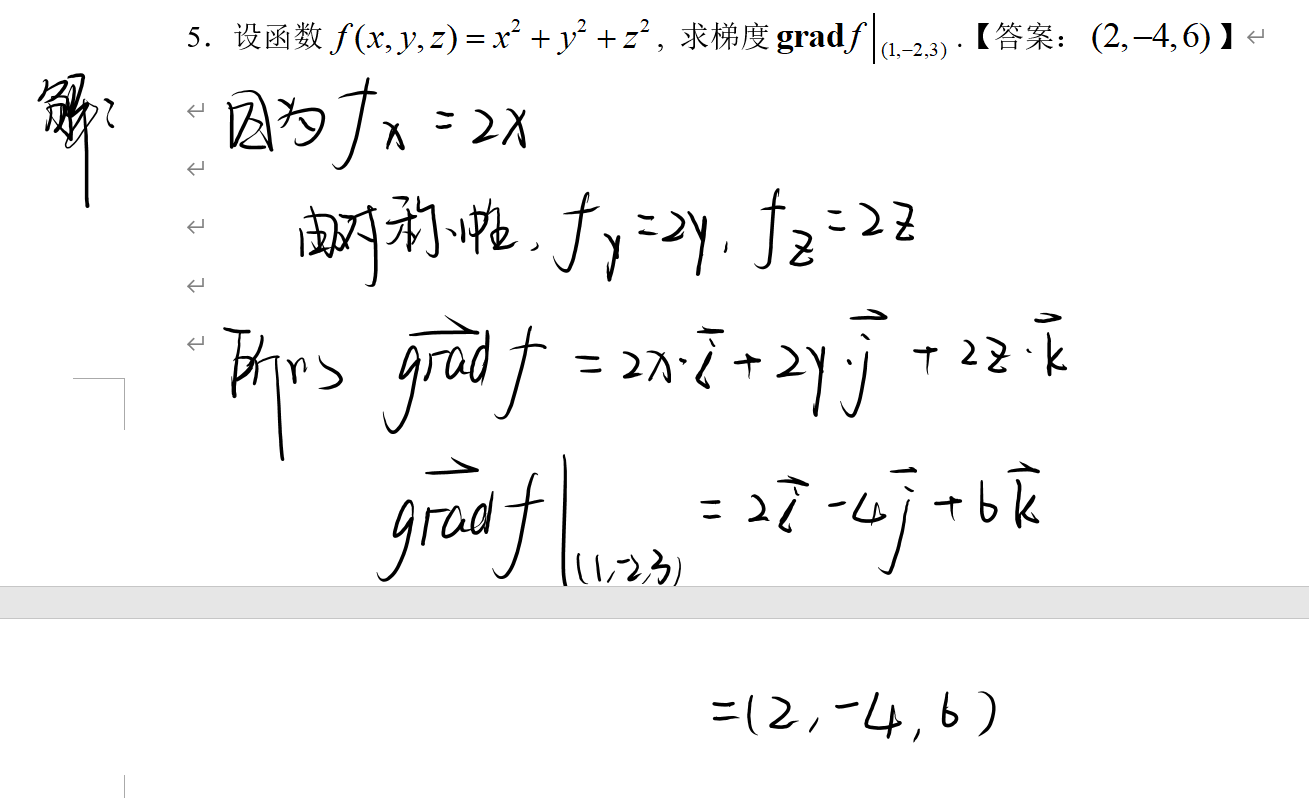 5. 设函数 f(x, y, z) = x² + y² + z², 求梯度 grad f|(1,−2,3) .【答案: (2, −4, 6)】
解:
因为 fx = 2x
由对称性, fy = 2y, fz = 2z
所以 grad f = 2x·i + 2y·j + 2z·k
grad f|(1,-2,3) = 2i - 4j + 6k
= (2, -4, 6)